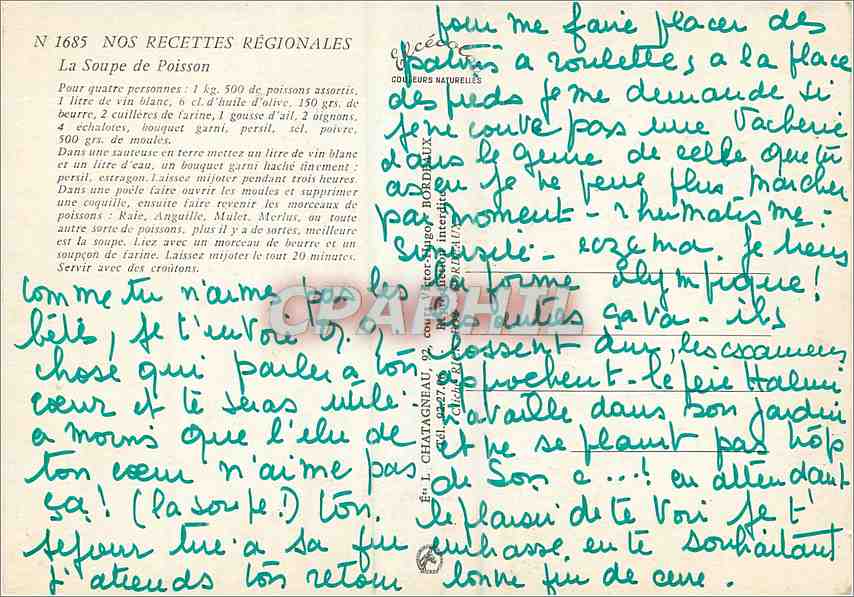 N 1685 NOS RECETTES RÉGIONALES
La Soupe de Poisson
Pour quatre personnes : 1 kg. 500 de poissons assortis,
1 litre de vin blanc, 6 cl. d'huile d'olive, 150 grs. de
beurre, 2 cuillères de farine, 1 gousse d'ail, 2 oignons,
4 échalotes, bouquet garni, persil, sel, poivre,
500 grs. de moules.
Dans une sauteuse en terre mettez un litre de vin blanc
et un litre d'eau, un bouquet garni haché finement :
persil, estragon. Laissez mijoter pendant trois heures.
Dans une poële faire ouvrir les moules et supprimer
une coquille, ensuite faire revenir les morceaux de
poissons : Raie, Anguille, Mulet, Merlus, ou toute
autre sorte de poissons, plus il y a de sortes, meilleure
est la soupe. Liez avec un morceau de beurre et un
soupçon de farine. Laissez mijoter le tout 20 minutes.
Servir avec des croûtons.
comme tu n'aime pas les
bêtes, je t'envoi q. q
chose qui parlera à ton
cœur et te seras utile
a moins que l'élu de
ton cœur n'aime pas
ça! (la soupe!) ton
séjour tire a sa fin
j'attends ton retour
pour me faire placer des
patins a roulettes a la place
des pieds je me demande si
je ne couve pas une vacherie
dans le genre de celle que tu
as eu je ne peux plus marcher
par moment - rhumatisme -
sinusite - eczema. je tiens
la forme olympique!
les autes sava - ils
bossent dur, les examens
approchent - le père
travaille dans son jardin
et ne se plaint pas trop
de son c...! en attendant
le plaisir de te voir je t'
embrasse en te souhaitant
bonne fin de cure.
COULEURS NATURELLES
Éts L. CHATAGNEAU, 92, cours Victor-Hugo, BORDEAUX
Tél. 92-27-
Reproduction interdite
CPARHIL